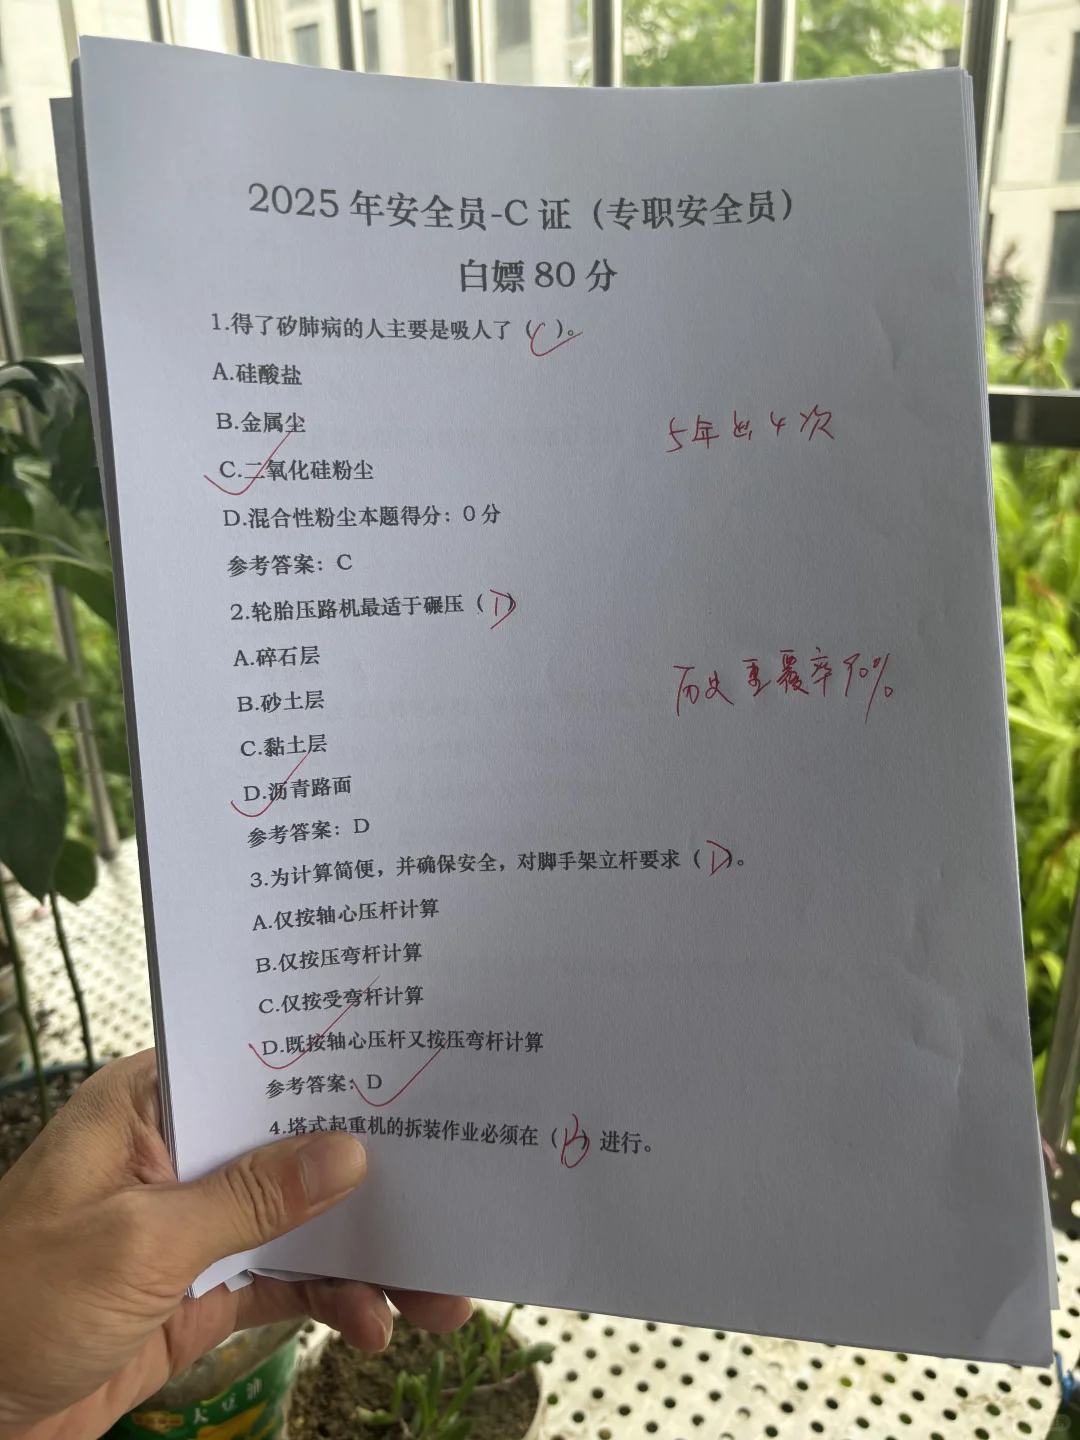 2025 年安全员-C 证（专职安全员）
白嫖 80 分
1.得了矽肺病的人主要是吸人了（C）。
A.硅酸盐
B.金属尘
5年出4次
C.二氧化硅粉尘
D.混合性粉尘本题得分：0 分
参考答案：C
2.轮胎压路机最适于碾压（D）
A.碎石层
历史重覆率90%
B.砂土层
C.黏土层
D.沥青路面
参考答案：D
3.为计算简便，并确保安全，对脚手架立杆要求（D）。
A.仅按轴心压杆计算
B.仅按压弯杆计算
C.仅按受弯杆计算
D.既按轴心压杆又按压弯杆计算
参考答案：D
4.塔式起重机的拆装作业必须在（B）进行。
大豆油